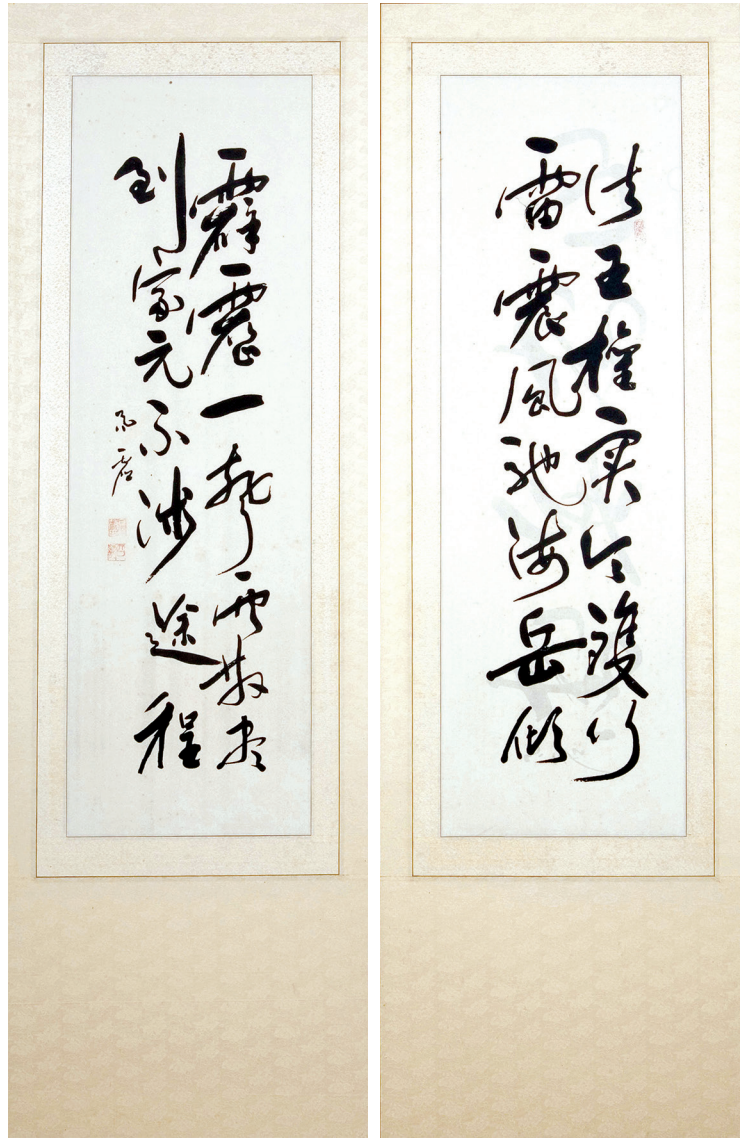 法王權実令雙行
雷震風馳海岳傾
霹靂一声雲散尽
到家元不涉途程